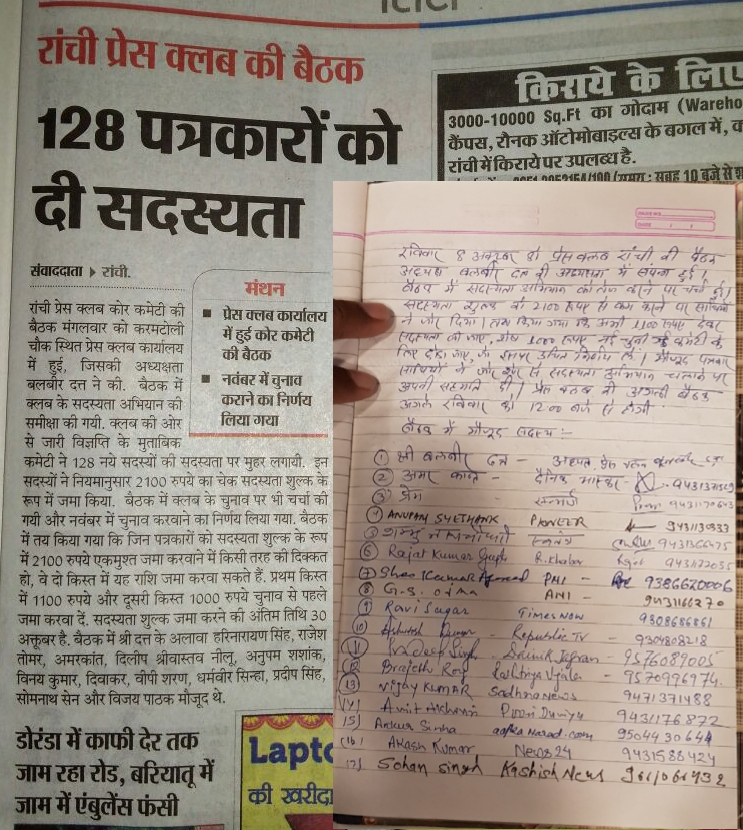 रांची प्रेस क्लब की बैठक
128 पत्रकारों को
दी सदस्यता
संवाददाता ▸ रांची.
रांची प्रेस क्लब कोर कमेटी की
बैठक मंगलवार को करमटोली
चौक स्थित प्रेस क्लब कार्यालय
में हुई, जिसकी अध्यक्षता
बलबीर दत्त ने की. बैठक में
क्लब के सदस्यता अभियान की
समीक्षा की गयी. क्लब की ओर
से जारी विज्ञप्ति के मुताबिक
कमेटी ने 128 नये सदस्यों की सदस्यता पर मुहर लगायी. इन
सदस्यों ने नियमानुसार 2100 रुपये का चेक सदस्यता शुल्क के
रूप में जमा किया. बैठक में क्लब के चुनाव पर भी चर्चा की
गयी और नवंबर में चुनाव करवाने का निर्णय लिया गया. बैठक
में तय किया गया कि जिन पत्रकारों को सदस्यता शुल्क के रूप
में 2100 रुपये एकमुश्त जमा करवाने में किसी तरह की दिक्कत
हो, वे दो किस्त में यह राशि जमा करवा सकते हैं. प्रथम किस्त
में 1100 रुपये और दूसरी किस्त 1000 रुपये चुनाव से पहले
जमा करवा दें. सदस्यता शुल्क जमा करने की अंतिम तिथि 30
अक्तूबर है. बैठक में श्री दत्त के अलावा हरिनारायण सिंह, राजेश
तोमर, अमरकांत, दिलीप श्रीवास्तव नीलू, अनुपम शशांक,
विनय कुमार, दिवाकर, वीपी शरण, धर्मवीर सिन्हा, प्रदीप सिंह,
सोमनाथ सेन और विजय पाठक मौजूद थे.
मंथन
■ प्रेस क्लब कार्यालय
में हुई कोर कमेटी
की बैठक
■ नवंबर में चुनाव
कराने का निर्णय
लिया गया
डोरंडा में काफी देर तक
जाम रहा रोड, बरियातू में
जाम में एंबुलेंस फंसी
किराये के लिए
3000-10000 Sq.Ft का गोदाम
कैंपस, रौनक ऑटोमोबाइल्स के बगल में,
रांची में किराये पर उपलब्ध है.
(समय: सुबह 10 बजे से
की खरीदा
रविवार 8 अक्टूबर को प्रेस क्लब रांची की बैठक
अध्यक्ष बलबीर दत्त की अध्यक्षता में संपन्न हुई।
बैठक में सदस्यता अभियान को तेज करने पर चर्चा हुई।
सदस्यता शुल्क को 2100 रुपए से कम करने पर साथियों
ने जोर दिया। तय किया गया कि अभी 1100 रुपए देकर
सदस्यता ली जाए, शेष 1000 रुपए नई चुनी गई कमेटी के
लिए छोड़ा जाए, जो इसपर उचित निर्णय ले। मौजूद पत्रकार
साथियों ने जोर शोर से सदस्यता अभियान चलाने पर
अपनी सहमति दी। प्रेस क्लब की अगली बैठक
अगले रविवार को 12:00 बजे से होगी
बैठक में मौजूद सदस्य :-
① श्री बलबीर दत्त - अध्यक्ष
② अमर कांत - दैनिक भास्कर -
③ प्रेम - सन्मार्ग
④ ANUPAM SHESHANK PIONEER
⑤
⑥ Rajat Kumar Gupta R. Khabar
⑦ Kumar PNI - 9386620006
⑧ G.S. ojha ANI - 9431166270
⑨ Ravi Sagar Times Now 9308686861
⑩ Ashutosh Republic TV - 9304808218
⑪ Pradeep Singh - Dainik Jagran - 9576089005
⑫ Brajesh Roy Rashtriya 9570996974
⑬ Vijay KUMAR Sadhna News 9471371488
⑭ 9431176872
15) Ankur Sinha 9504430644
16) Akash Kumar News 24 9431588424
17) Sohan singh Kashish News